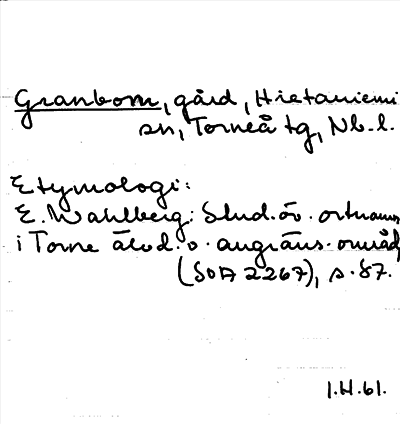 Granbom, gård, Hietaniemi
sn, Torneå tg, Nb.l.
Etymologi:
E. Wahlberg: Stud. öv. ortnamn
i Torne älvd. o. angräns. områd
(SOA 2267), s. 87.
1.H.61.